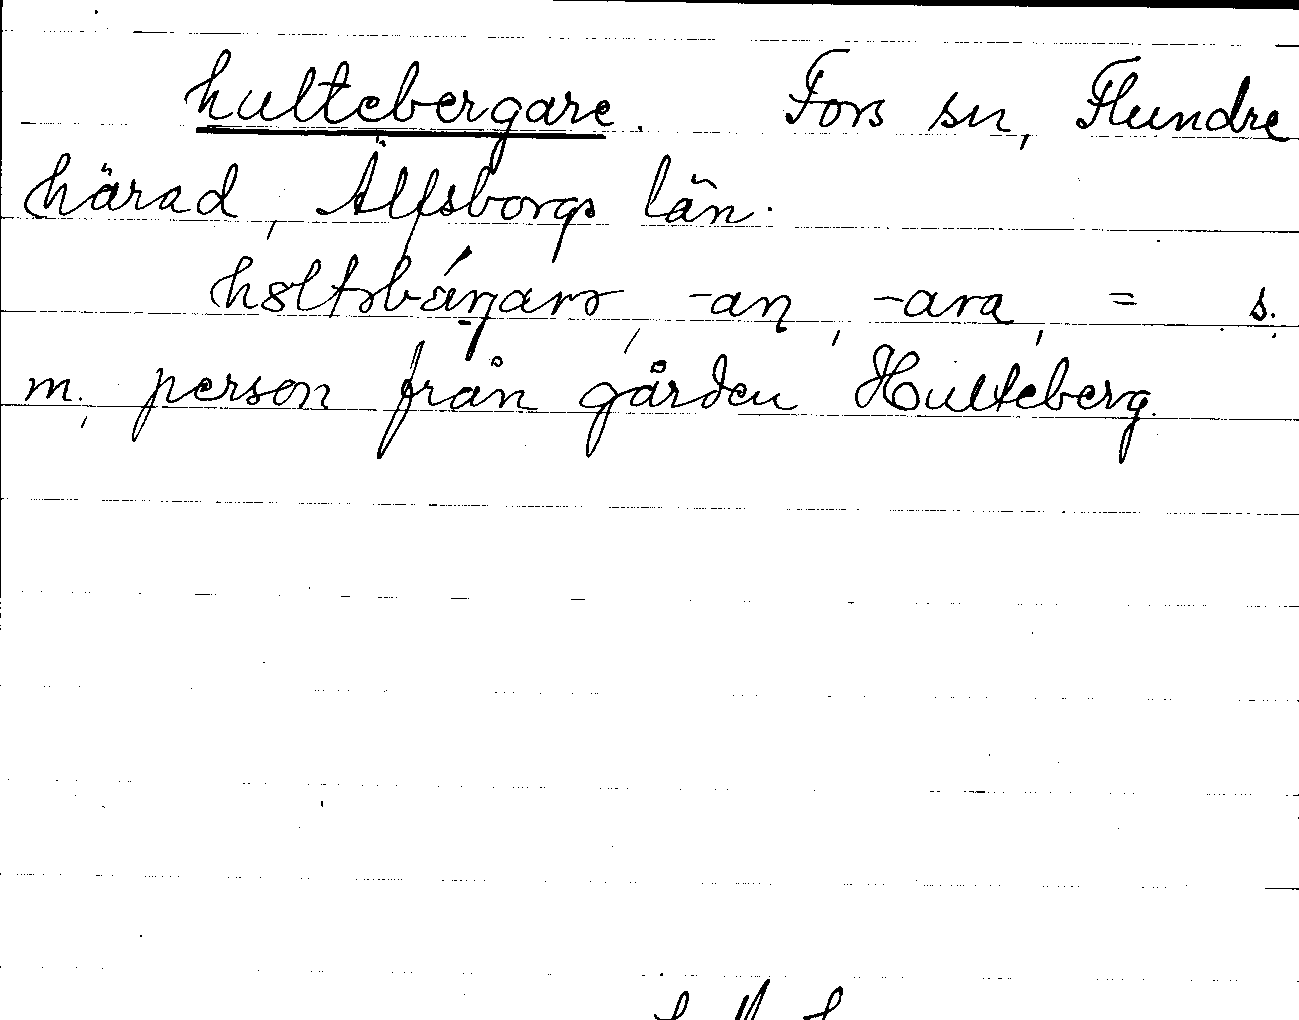 hultebergare. Fors sn, Flundre
härad, Älfsborgs län.
-an, -ara, = s.
m. person från gården Hulteberg.